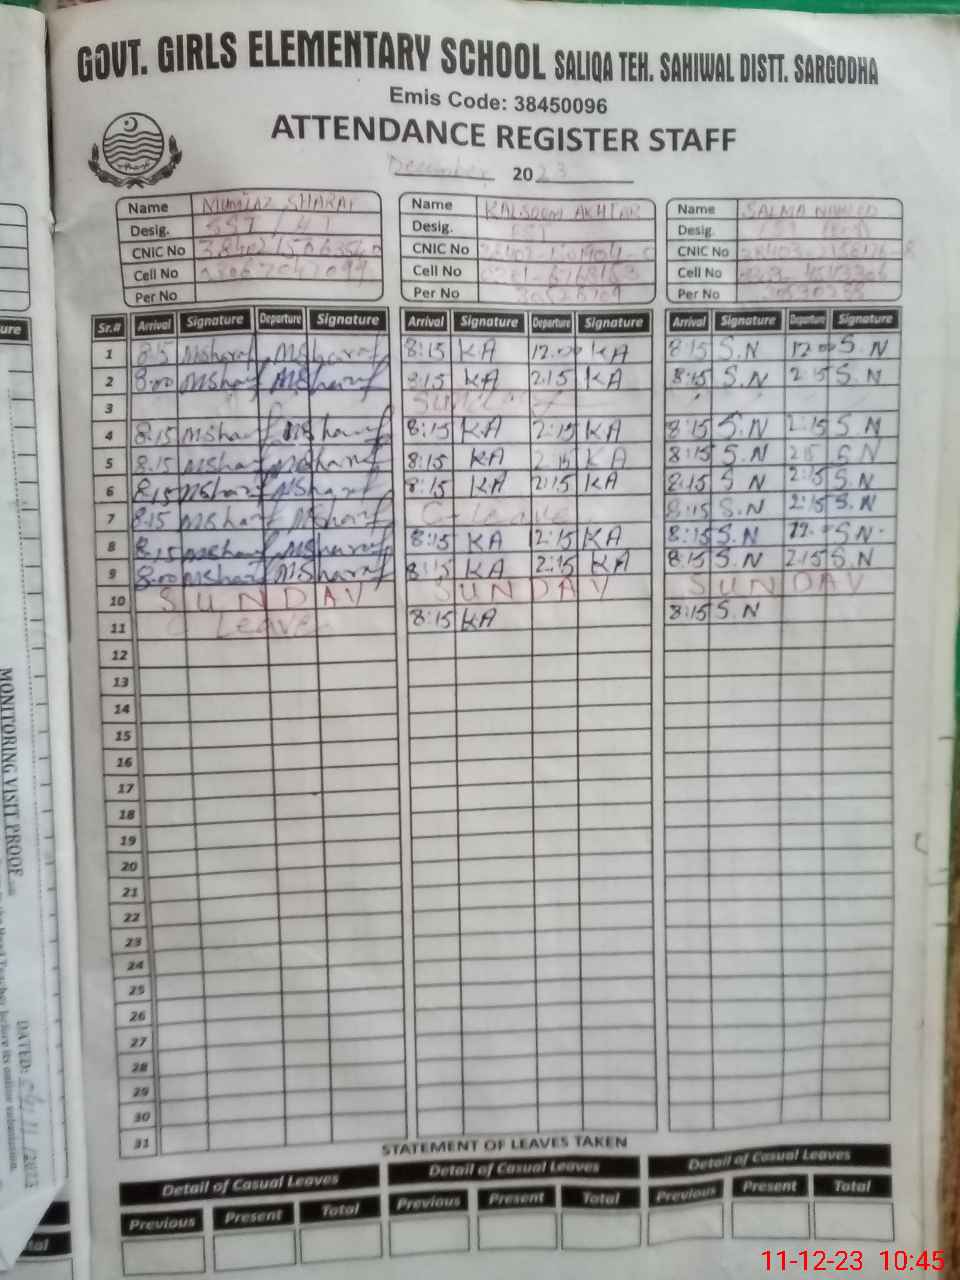 GOVT. GIRLS ELEMENTARY SCHOOL SALIQA TEH. SAHIWAL DISTT. SARGODHA
Emis Code: 38450096
ATTENDANCE REGISTER STAFF
December 2023
Name MUMTAZ SHARAF Name KALSOOM AKHTAR Name SALMA
Desig. Desig. EST Desig. EST
CNIC No CNIC No CNIC No
Cell No Cell No Cell No
Per No Per No Per No
Sr.# Arrival Signature Departure Signature Arrival Signature Departure Signature Arrival Signature Departure Signature
1 8:15 MSharaf MSharaf 8:15 KA 12.00 KA 8:15 S.N 12 00 S.N
2 8:00 MSharaf MSharaf 8:15 KA 2:15 KA 8:15 S.N 2:15 S.N
3 Sunday
4 8:15 MSharaf MSharaf 8:15 KA 2:15 KA 8:15 S.N 2:15 S.N
5 8:15 MSharaf MSharaf 8:15 KA 2:15 KA 8:15 S.N 2:15 S N
6 8:15 MSharaf MSharaf 8:15 KA 2:15 KA 8:15 S N 2:15 S.N
7 8:15 MSharaf MSharaf C-leave 8:15 S.N 2:15 S.N
8 8:15 MSharaf MSharaf 8:15 KA 12:15 KA 8:15 S.N S.N
9 8:00 MSharaf MSharaf 8:15 KA 2:15 KA 8:15 S.N 2:15 S.N
10 SUNDAY SUNDAY SUNDAY
11 C Leave 8:15 KA 8:15 S.N
12
13
14
15
16
17
18
19
20
21
22
23
24
25
26
27
28
29
30
31
STATEMENT OF LEAVES TAKEN
Detail of Casual Leaves Detail of Casual Leaves Detail of Casual Leaves
Previous Present Total Previous Present Total Previous Present Total
MONITORING VISIT PROOF
DATED:
11-12-23 10:45